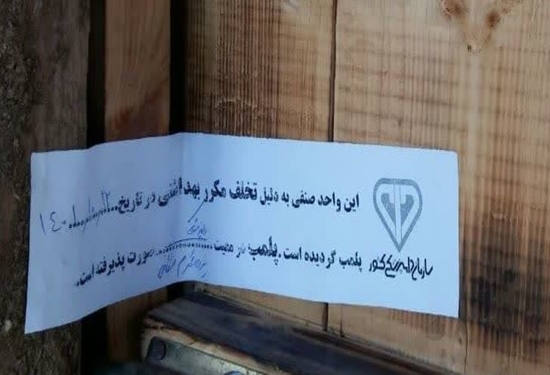 این واحد صنفی به دلیل تخلف مکرر بهداشتی در تاریخ ... ۱۴۰۱
سازمان دامپزشکی کشور
پلمب گردیده است. پلمب در معیت ........ صورت پذیرفته است.